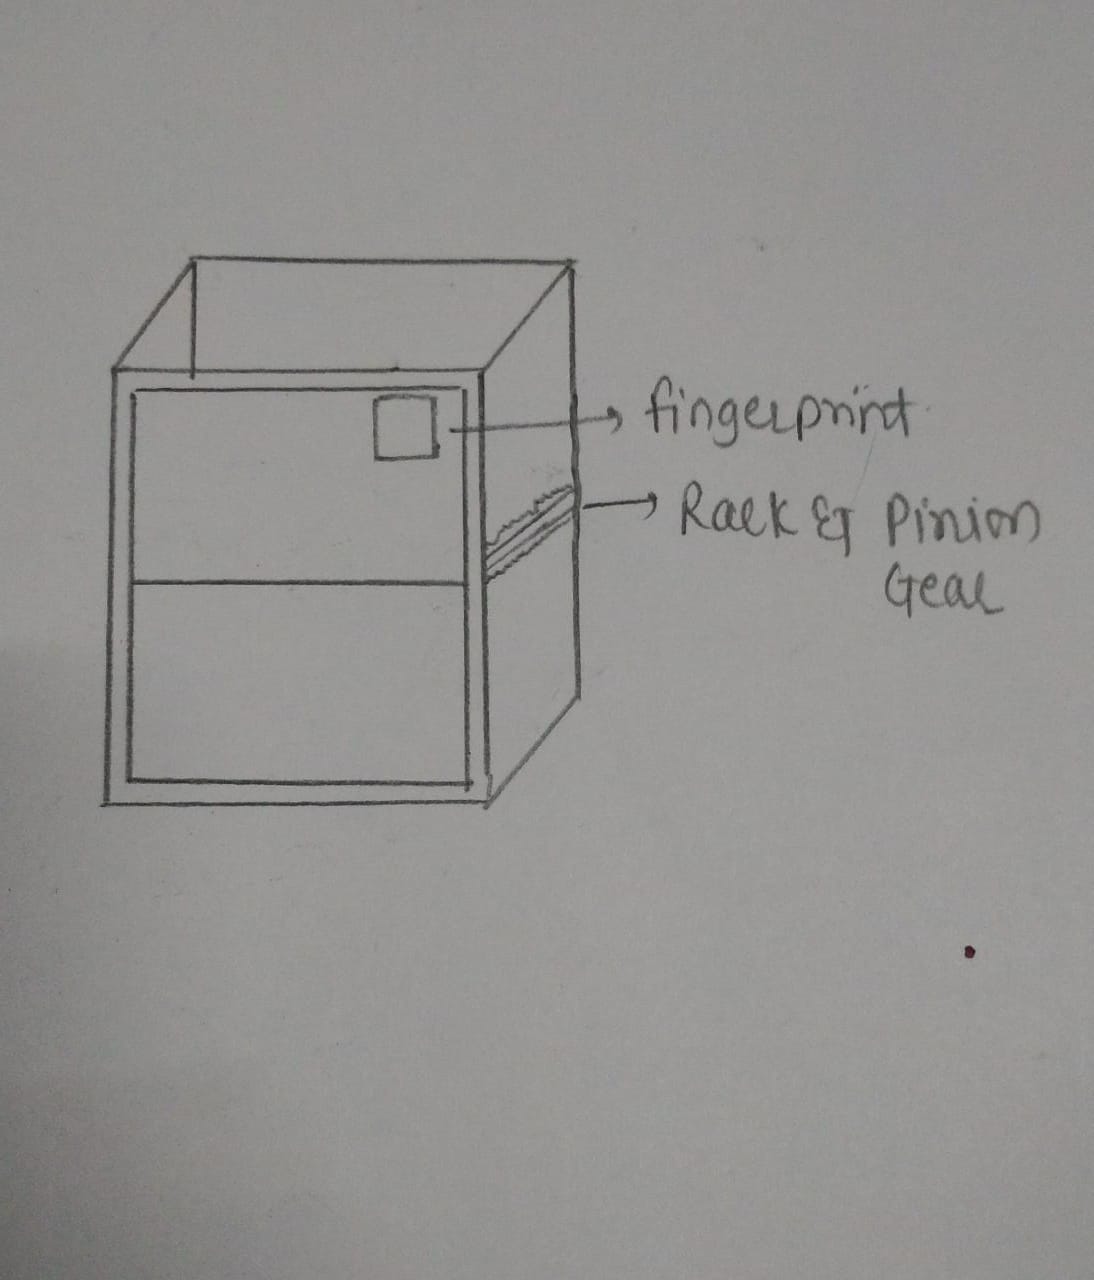 fingerprint
Rack & Pinion
Gear